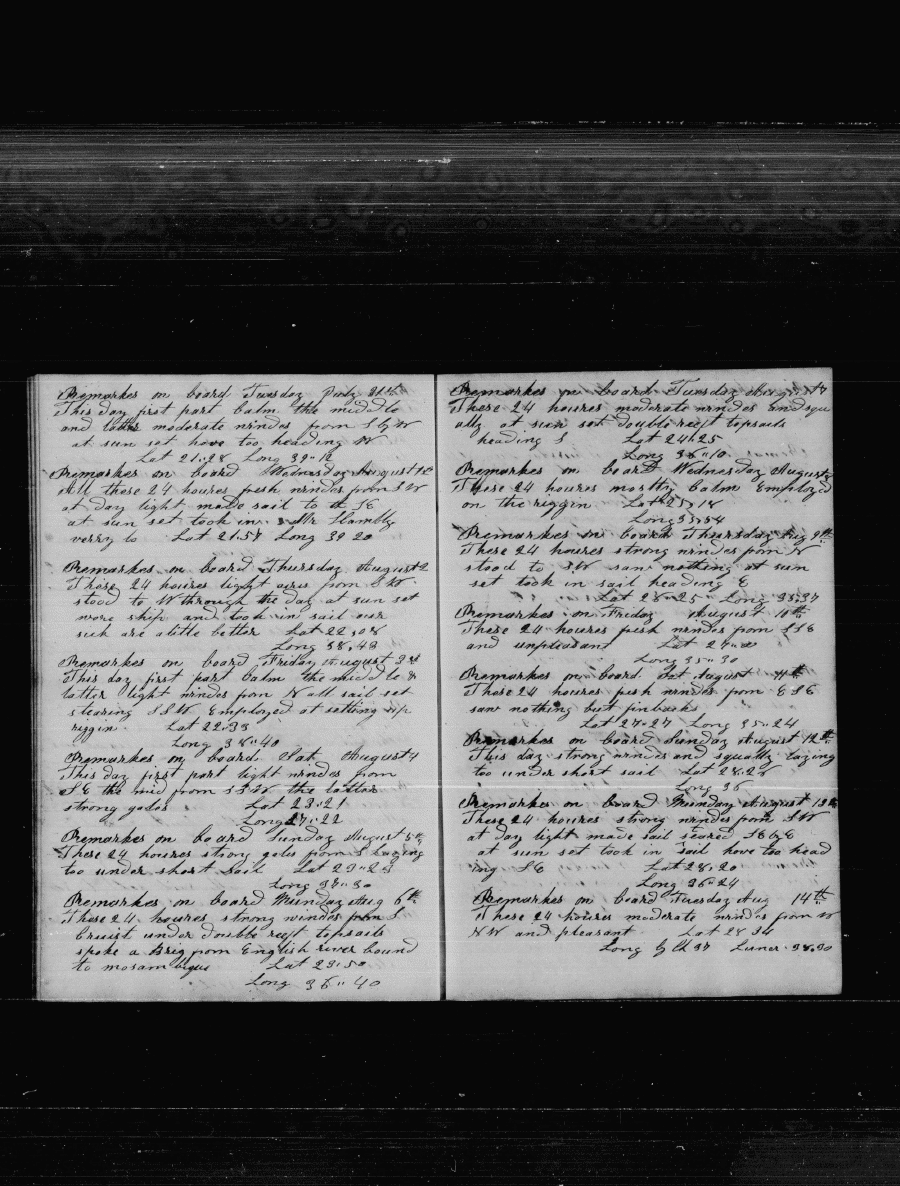 Remarkes on board Tuesday July 31th
This day first part Calm the middle
and latter moderate windes from S by W
at sun set hove too heading W
Lat 21"28 Long 39"12
Remarkes on board Wednesday August 1st
All these 24 houres fresh windes from S W
at day light made sail to SE
at sun set took in Mr Hambly
verry lo Lat 21.57 Long 39 20
Remarkes on board Thursday August 2
These 24 houres light aires from S W
stood to W through the day at sun set
wore ship and took in sail our
sick are a little better Lat 22.08
Long 38.43
Remarkes on board Friday August 3rd
This day first part Calm the middle &
latter light windes from N all sail set
stearing SSW Employed at setting up
riggin Lat 22.33
Long 38"40
Remarkes on board Sat August 4
This day first part light windes from
SE the mid from SSW the latter
strong gales Lat 23"21
Long 37"22
Remarkes on board Sunday August 5th
These 24 houres strong gales from S Laying
too under short sail Lat 23"23
Long 37"30
Remarkes on board Munday Aug 6th
These 24 houres strong windes from S
Cruist under double reeft topsails
spoke a Brig from English river bound
to mosambique Lat 23.50
Long 36"40
Remarkes on board Tuesday August 7
These 24 houres moderate windes and squ
ally at sun set double reeft topsails
heading S Lat 24"25
Long 36"10
Remarkes on board Wednesday August
These 24 houres mostly Calm Employed
on the riggin Lat 25,18
Long 35,54
Remarkes on board Thursday Aug 9th
These 24 houres strong windes from N
stood to SW saw nothing at sun
set took in sail heading E
Lat 26"25 Long 35.37
Remarkes on Friday August 10th
These 24 houres fresh windes from SSE
and unpleasant Lat 27"
Long 35"30
Remarkes on board Sat August 11th
These 24 houres fresh windes from ESE
saw nothing but finbacks
Lat 27"27 Long 35"24
Remarkes on board Sunday August 12th
This day strong windes and squally Laying
too under short sail Lat 28.28
Long 36
Remarkes on board Munday August 13th
These 24 houres strong windes from SW
at day light made sail steared SE by E
at sun set took in sail hove too head
ing SE Lat 28,20
Long 36"24
Remarkes on board Tuesday Aug 14th
These 24 houres moderate windes from W
NW and pleasant Lat 28 34
Long by Ch 37 Luner 38.30